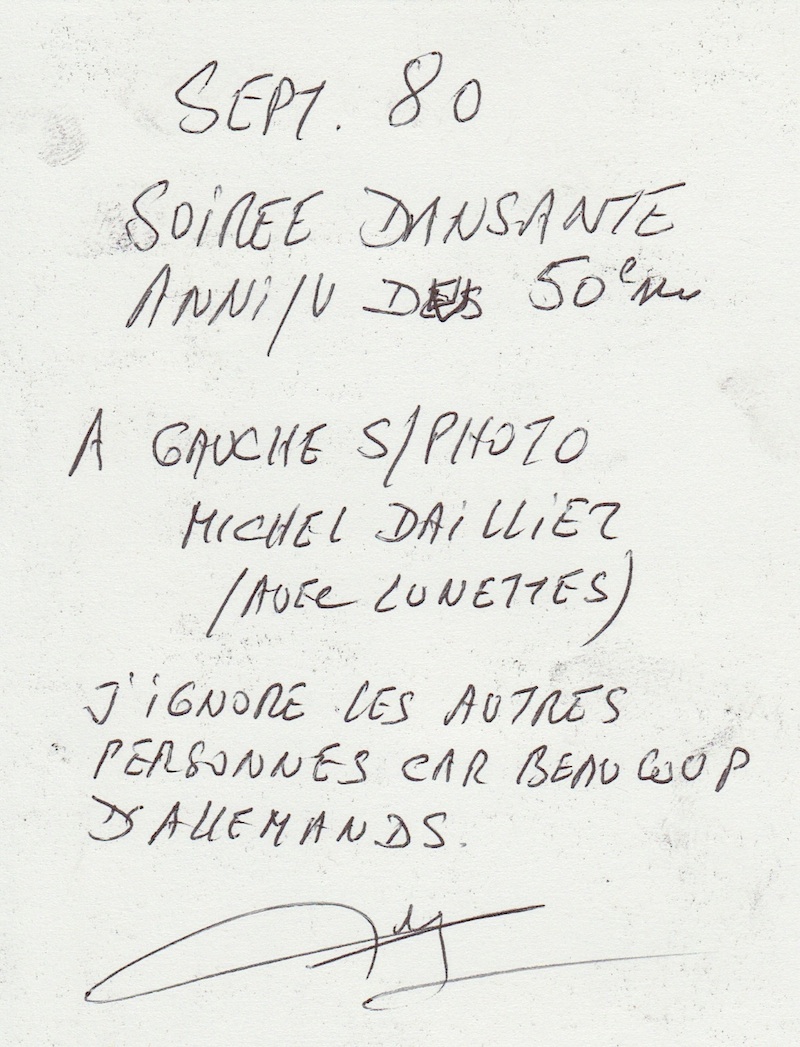 SEPT. 80
SOIREE DANSANTE
ANNI/V DES 50ème
A GAUCHE S/PHOTO
MICHEL DAILLIEZ
(AVEC LUNETTES)
J'IGNORE LES AUTRES
PERSONNES CAR BEAUCOUP
D'ALLEMANDS.